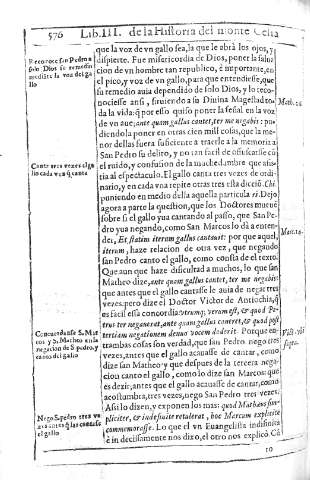 576 Lib.III. de la Historia del monte Celia
que la voz de vn gallo sea, la que le abrà los ojos, y
dispierte. Fue misericordia de Dios, poner la salu
cion de vn hombre tan republico, è importante, en
el pico, y voz de vn gallo, para que entendiesse, que
su remedio auia dependido de solo Dios, y lo reco-
nociesse ansi, siruiendo a su Diuina Magestad to-
da la vida: que por esso quiso poner la señal en la voz
de vn aue; ante quam gallus cantet, ter me negabis: pu-
diendola poner en otras cien mil cosas, que la me-
nor dellas fuera suficiente a traerle a la memoria a
San Pedro su delito, y no tan facil de ofuscarse cõ
el ruido, y confusion de la muched.umbre que assi-
tia al espectaculo. El gallo canta tres vezes de ordi-
nario, y en cada vna repite otras tres esta diccio, Chi,
puniendo en medio della aquella particula ri Dejo
agora a parte la question, que los Doctores mueuẽ
sobre si el gallo yua cantando al passo, que San Pe-
dro yua negando, como San Marcos lo dà a enten-
der, Et statim iterum gallus cantauit: por que aquel,
iterum, haze relacion de otra vez, que negando
san Pedro canto el gallo, como consta de el texto.
Que aun que haze dificultad a muchos, lo que san
Matheo dize, ante quam gallus cantet, ter me negabis:
que antes que el gallo cantasse le auia de negar tres
vezes: pero dize el Doctor Victor de Antiochia, q̃
es facil essa concordia: vtrumq; verum est, & quod Pe-
trus ter negauerat, ante quam gallus caneret, & quod post
tertiam negationem denuo vocem dederit. Porque en-
trambas cosas son verdad, que san Pedro negò tres
vezes, antes que el gallo acauasse de cantar, como
dize san Matheo: y que despues de la tercera nega-
cion canto el gallo, como lo dize san Marcos: que
es dezir, antes que el gallo acauasse de cantar, como
acostumbra, tres vezes, nego San Pedro tres vezes:
Assi lo dizen, y exponen los mas: quod Mathæus sim-
pliciter, & indefinite retulerat, hoc Marcum explicite
commemorasse. Lo que el vn Euangelista indistincta
è indecissamente nos dize, el otro nos explicò. Cõ
Reconoce san Pedro a
solo Dios su remedio
mediãte la voz del ga-
llo
Canta tres vezes el ga-
llo cada vna q̃ canta
Concordasse S. Mar-
cos y S. Matheo en la
negacion de S. pedro, y
canto del gallo
Nego S. pedro tres ve
zes antes q̃ las cantasse
el gallo